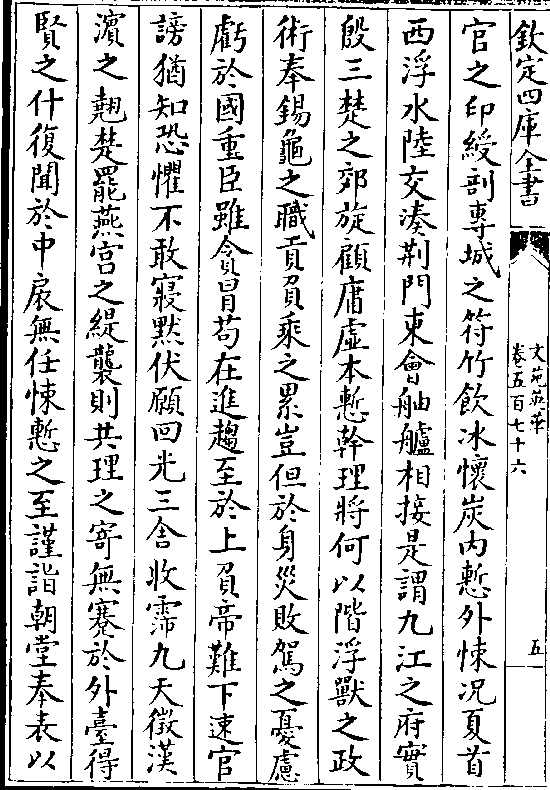 欽定四庫全書
文苑英華
卷五百七十六
五
官之印綬剖專城之符竹飲冰懷炭内慙外悚况夏首
西浮水陸交湊荆門東會舳艫相接是謂九江之府實
殷三楚之郊旋顧庸虚本慙幹理將何以階浮獸之政
術奉錫龜之職貢負乘之累豈但於身災敗駕之憂慮
虧於國重臣雖貪冒苟在進趨至於上負帝難下速官
謗猶知恐懼不敢寢黙伏願回光三舍收霈九天徴漢
濵之翹楚罷燕宫之緹襲則共理之寄無蹇於外臺得
賢之什復聞於中扆無任悚慙之至謹詣朝堂奉表以